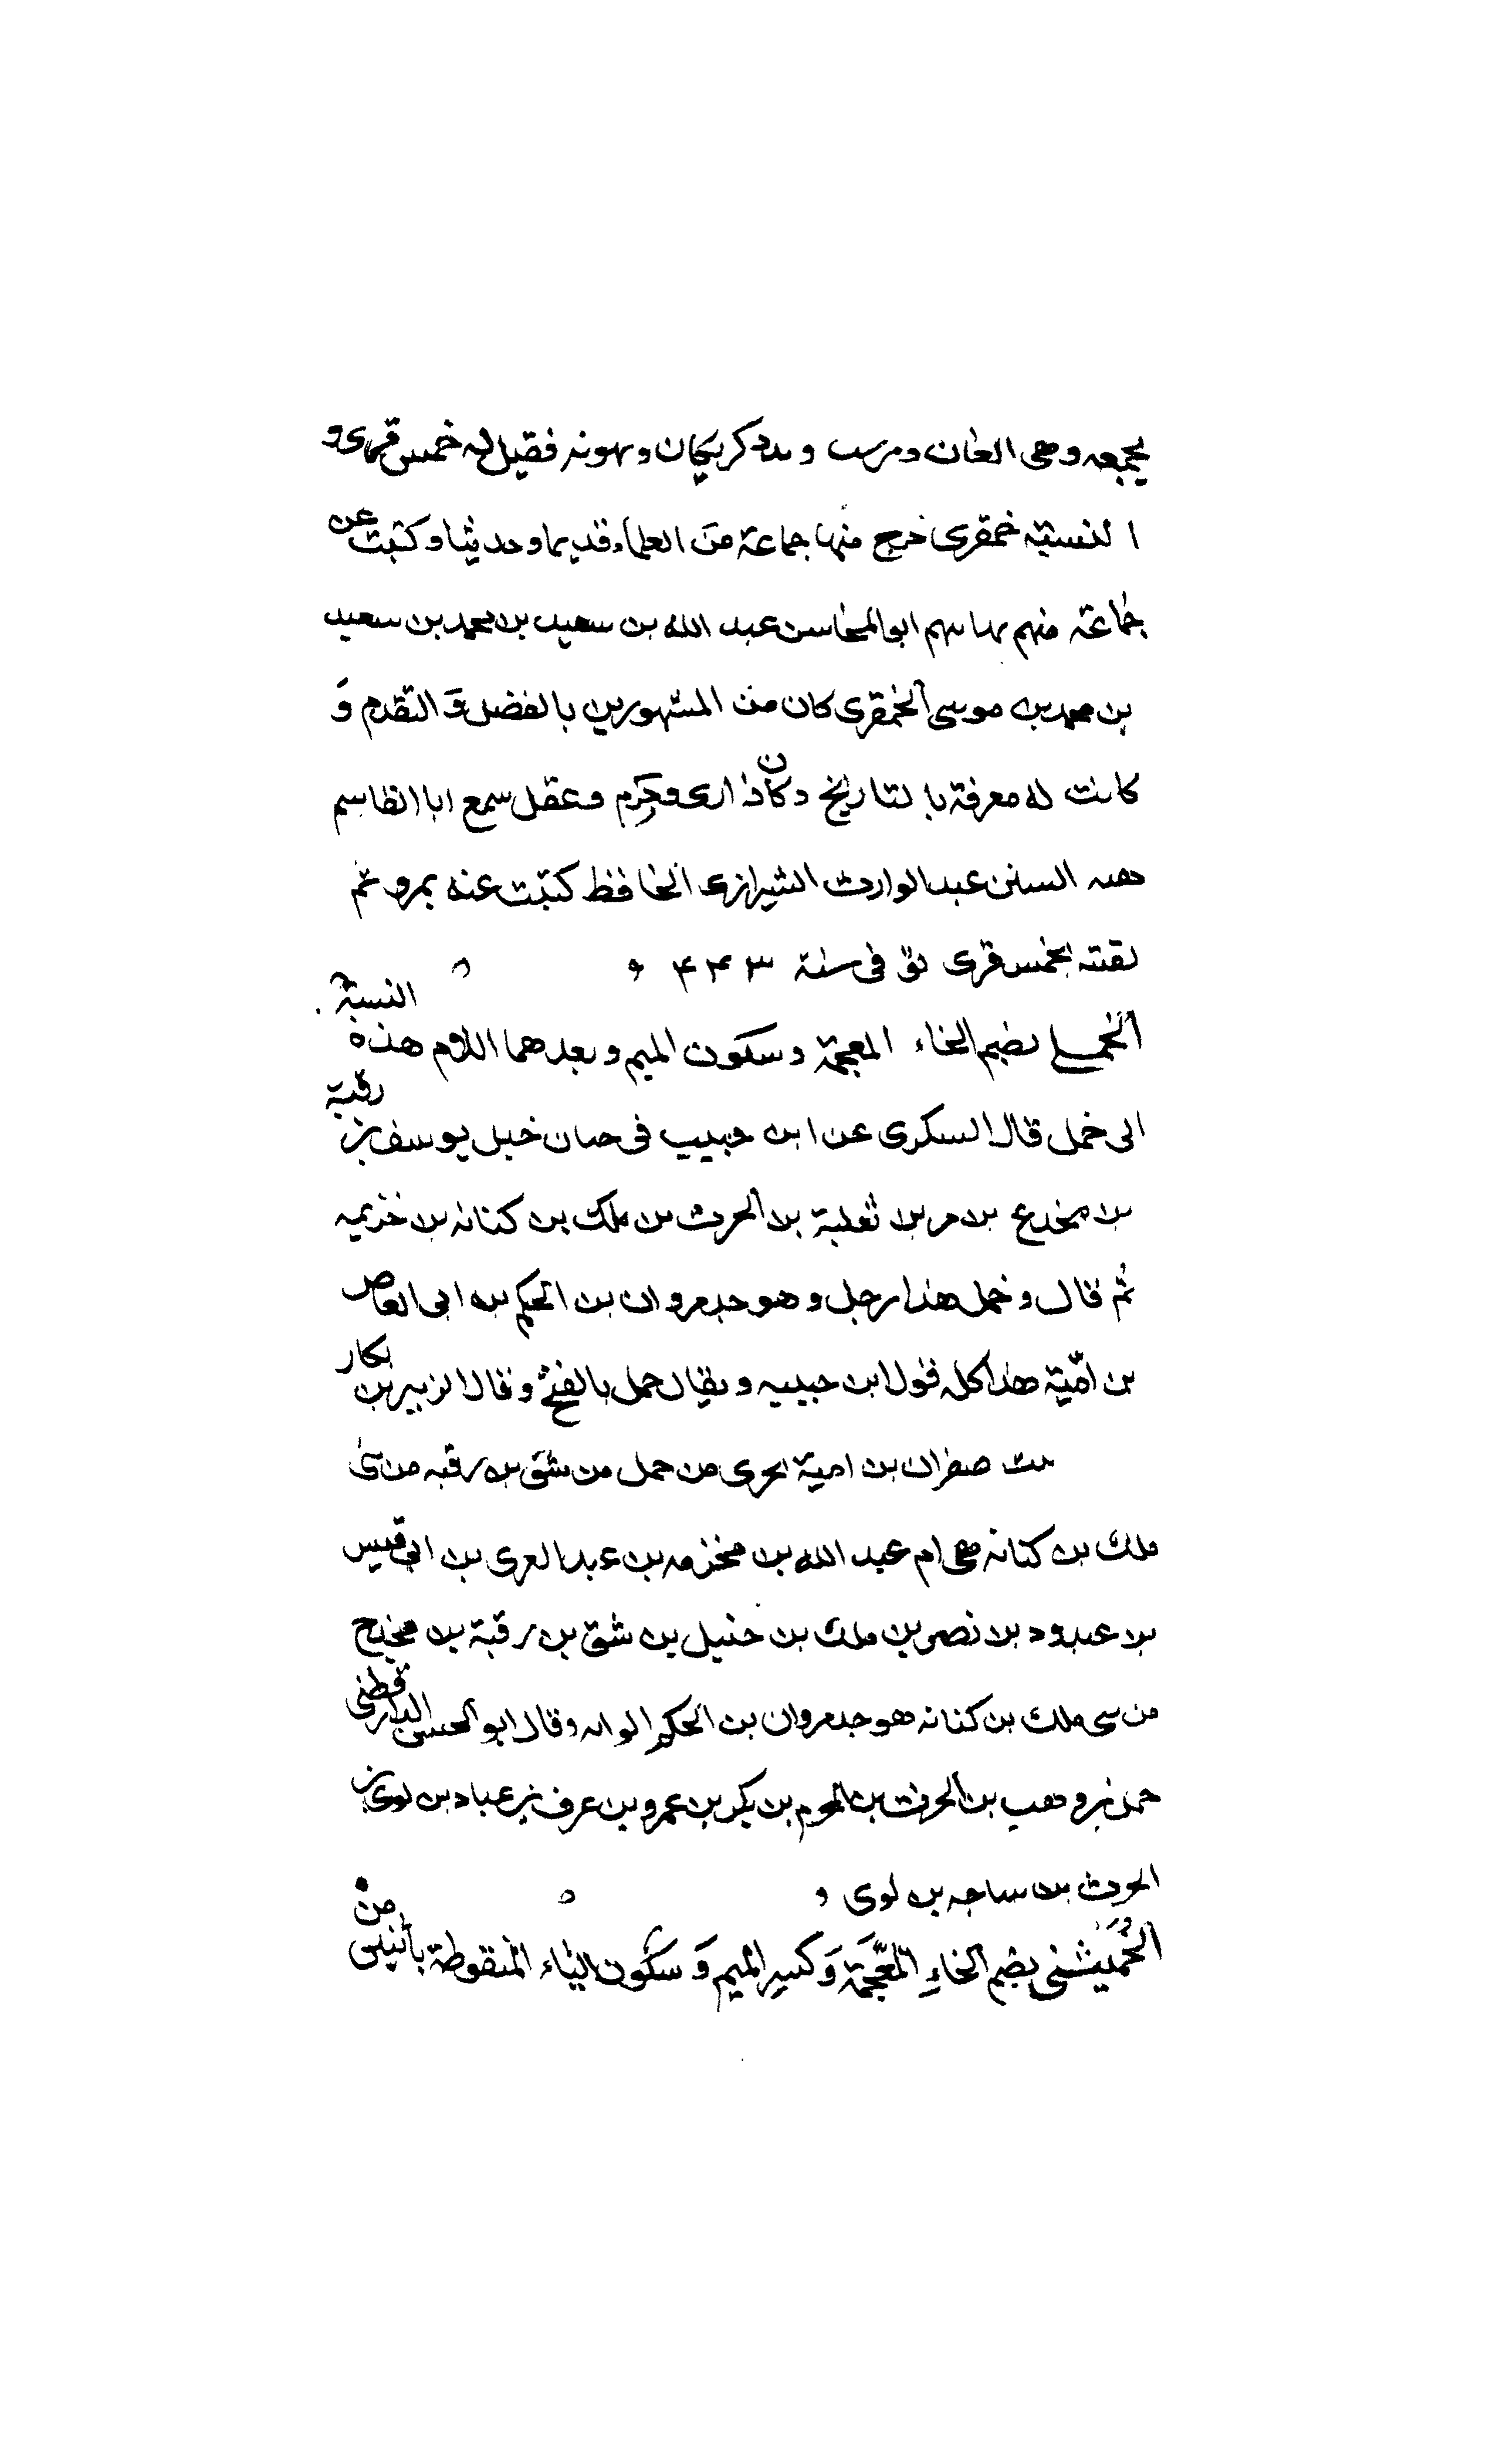 يجمعه وهى العان ومرست و مدد كريكان وبهونه فقيل له خمس قرى و
النسبة خمقرى خرج منها جماعة من العلماء قديما وحديثا وكتبت عن
جماعة منهم بها منهم ابو المحاسن عبد الله بن سعيد بن محمد بن سعيد
بن محمد بن موسى الخمقرى كان من المشهورين بالفضل و التقدم و
كانت له معرفة بالتاريخ وكان ذا راى وحزم وعقل سمع ابا القاسم
هبه الله بن عبد الوارث الشيرازى الحافظ كتبت عنه بمرو ثم
لقيته بخمس قرى توفى سنة ٤٤٣
الخملى بضم الخاء المعجمة وسكون الميم وبعدهما اللام هذه النسبة
الى خمل قال السكرى عن ابن حبيب فى خمل يوسف بن رقبة
بن مخدع بن مر بن ثعلبة بن الحرث بن ملك بن كنانه بن خزيمه
ثم قال و خمل هذا رجل و هو جد مروان بن الحكم بن ابى العاص
بن امية هذا كله قول ابن حبيب و يقال حمل بالفتح و قال الزبير بن بكار
بنت صفوان بن امية بن محرث من حمل من شق بن رقبه من بنى
ملك بن كنانه هى ام عبد الله بن مخرمه بن عبد العزى بن ابى قيس
بن عبد ود بن نصر بن ملك بن حنبل بن شق بن رقبة بن مخدج
من بنى ملك بن كنانه هو جد مروان بن الحكم وقال ابو الحسن الدارقطنى
حمل بن وهب بن الحرث بن المحرم بن بكر بن عمرو بن عوف بن عباد بن لوى بن
الحرث بن سامه بن لوى
الخُمَيثنى بضم الخاءِ المعجمة وَكسر الميم وَ سكون الياء المنقوطة باثنين من